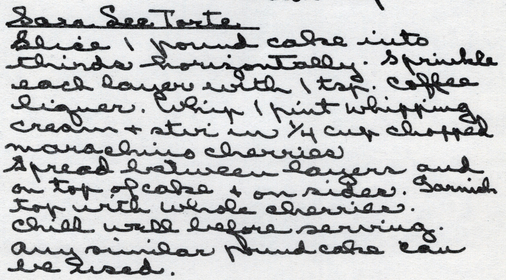 Sara See Torte
Slice 1 pound cake into
thirds horizontally. Sprinkle
each layer with 1 tsp. coffee
liquer. Whip 1 pint whipping
cream + stir in 1/4 cup chopped
maraschino cherries
Spread between layers and
on top of cake & on sides. Garnish
top with whole cherries.
Chill well before serving.
Any similar pound cake can
be used.